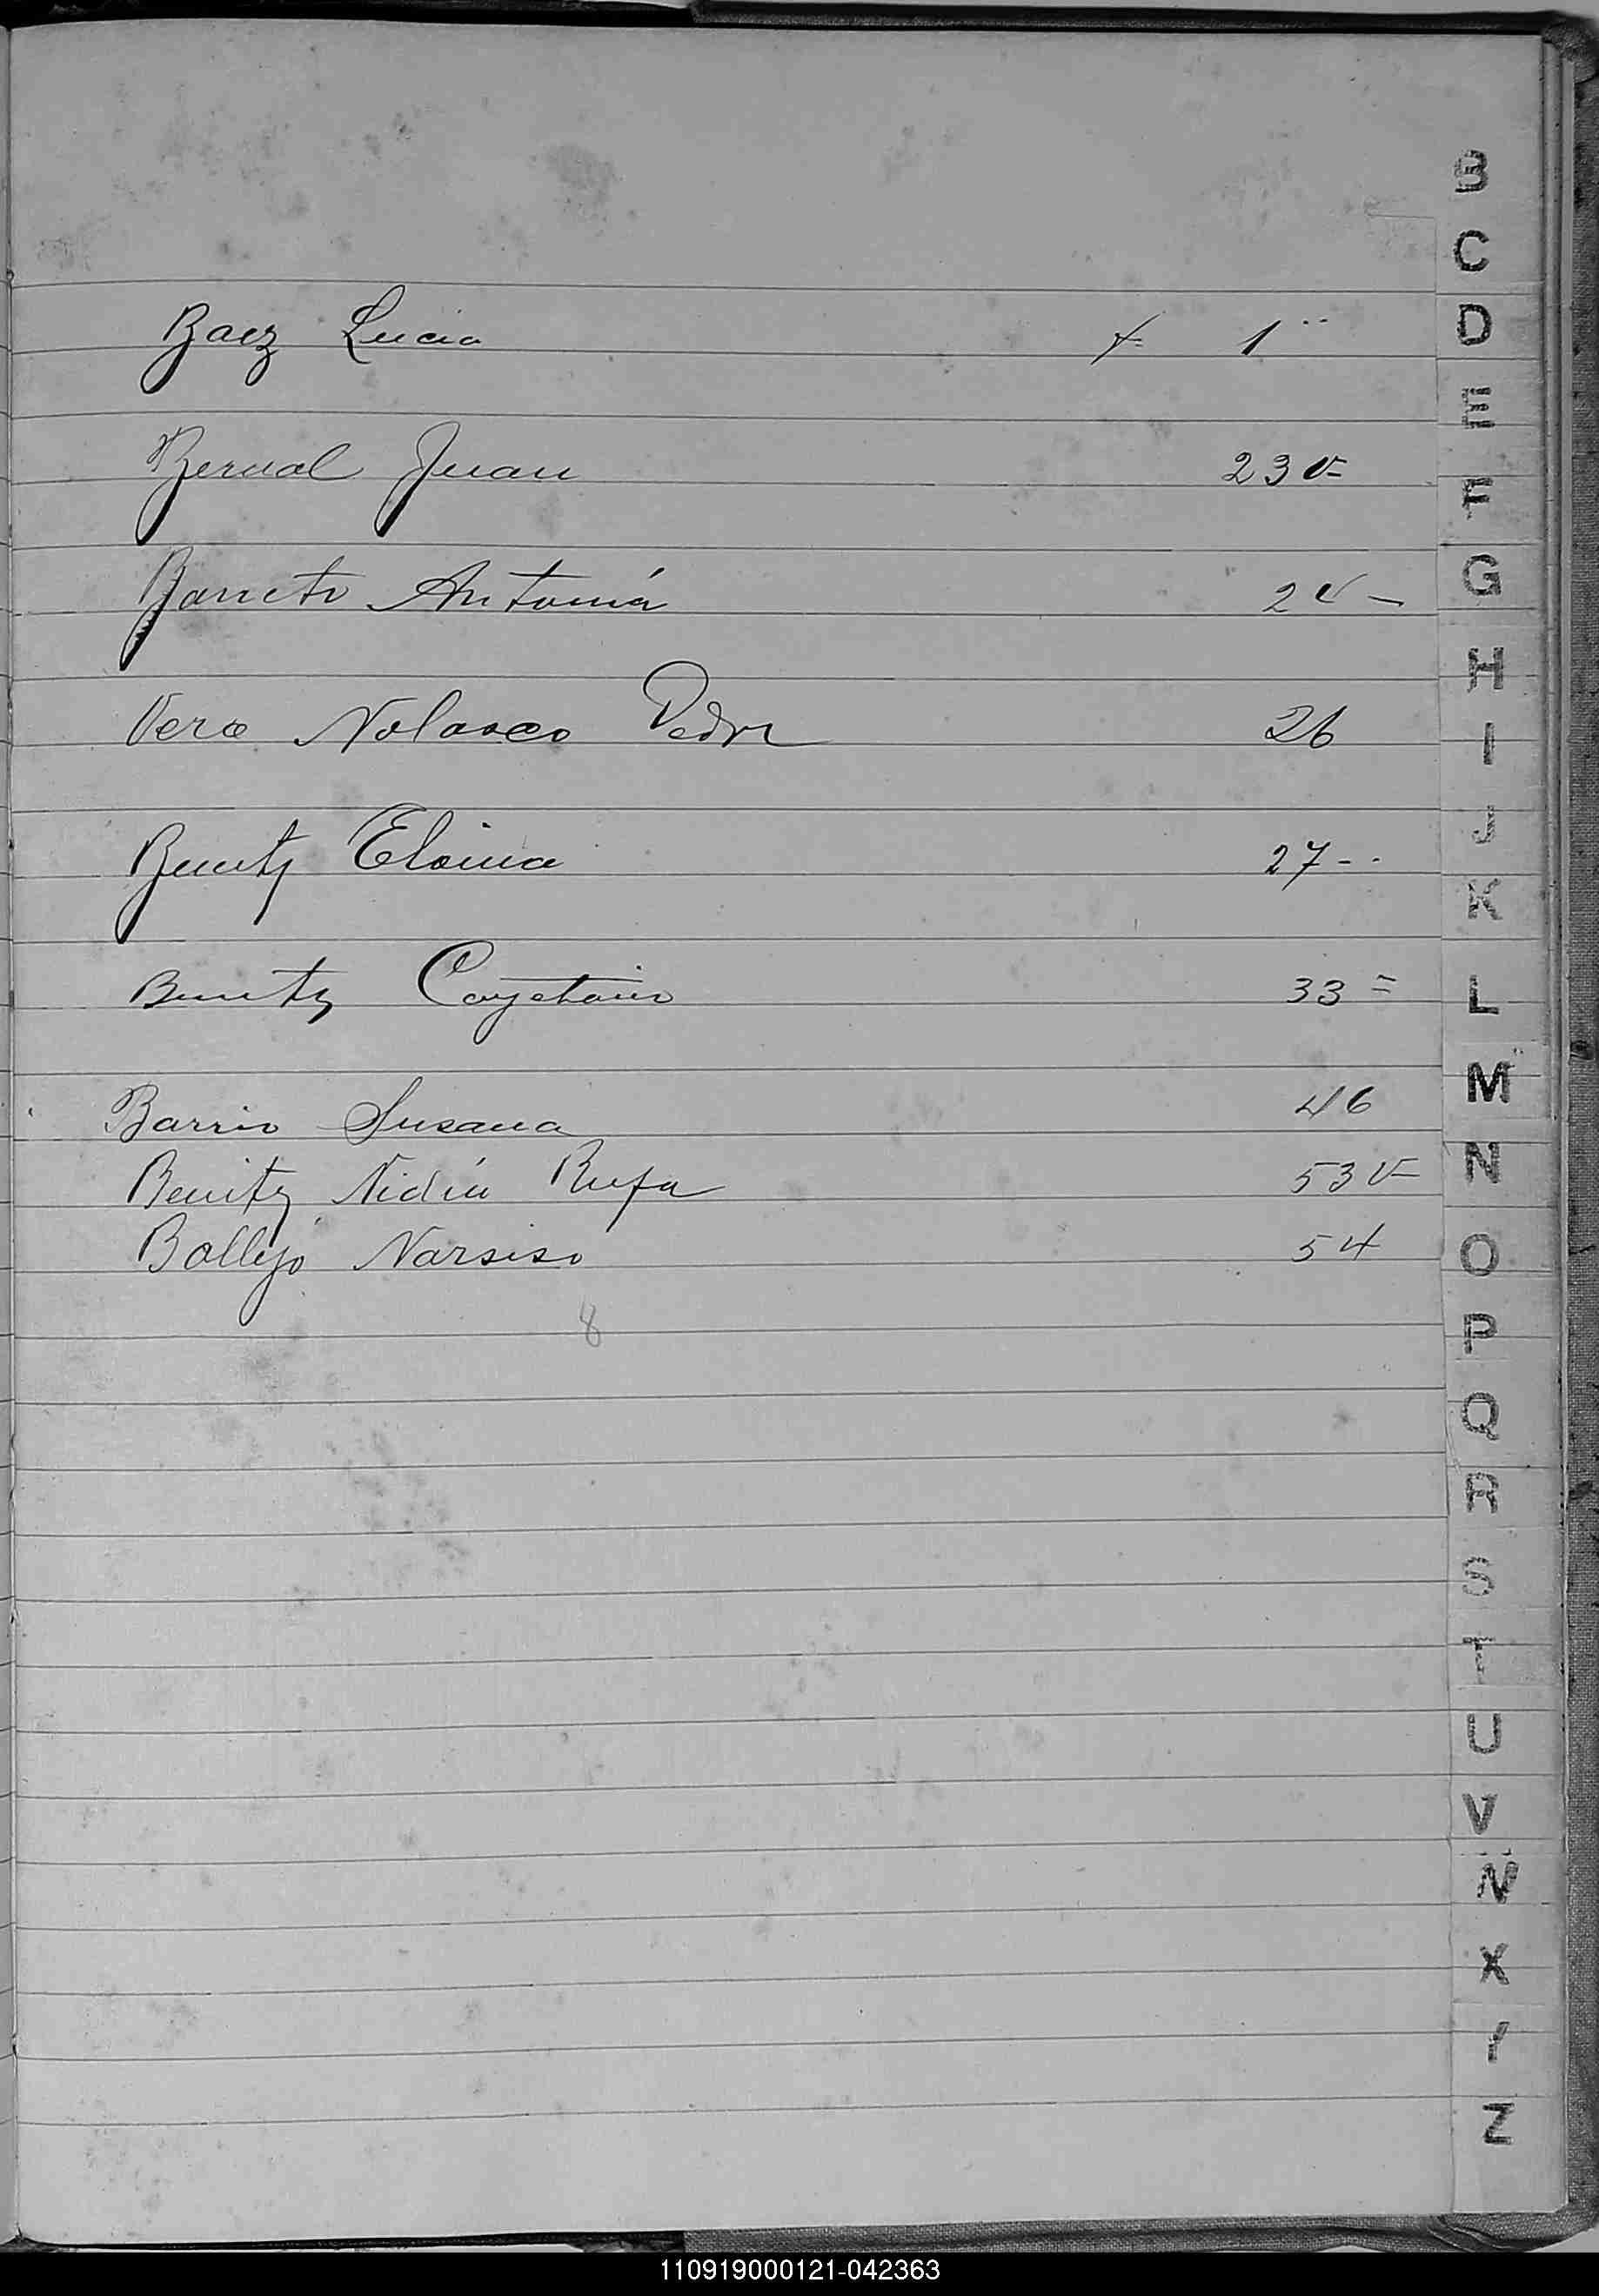 B
C
Baez Lucia f= 1"
D
E
Bernal Juan 23 v=
F
Antonia 2 v –
G
H
Vera Nolasco Pedro 26
I
J
Benitz Eloina 27 --
K
Benitz Cayetano 33 =
L
M
Barrio Susana 46
Benitz Nidia Rufa 53 v–
N
Ballejo Narsiso 54
O
8
P
Q
R
S
T
U
V
X
Z
110919000121-042363